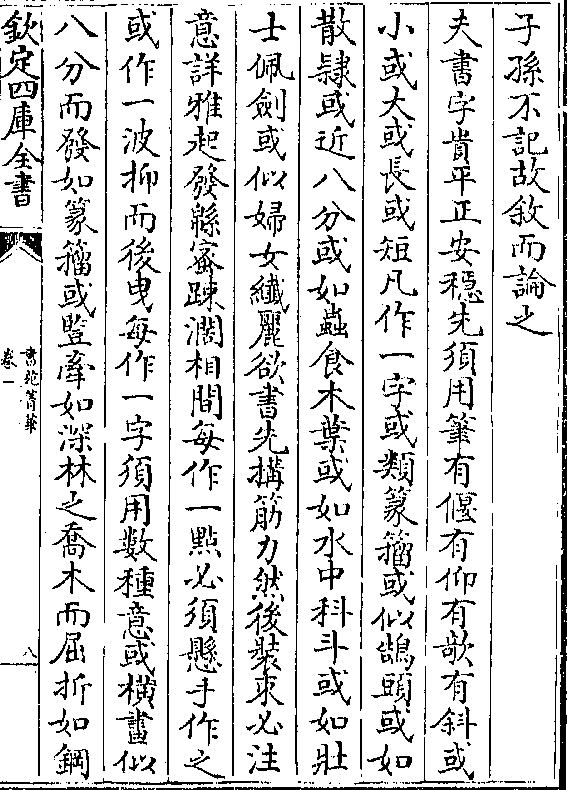 子孫不記故敘而論之
夫書字貴平正安穩先須用筆有偃有仰有欹有斜或
小或大或長或短凡作一字或類篆籀或似鵠頭或如
散隸或近八分或如蟲食木葉或如水中科斗或如壯
士佩劍或似婦女纖麗欲書先搆筋力然後裝束必注
意詳雅起發緜密踈濶相間每作一點必須懸手作之
或作一波抑而後曳每作一字須用數種意或橫畫似
八分而發如篆籀或豎牽如深林之喬木而屈折如鋼
欽定四庫全書
書苑菁華
卷一
八